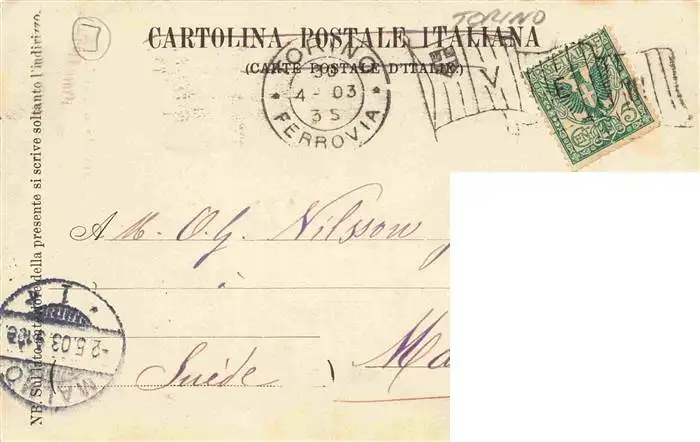 TORINO
CARTOLINA POSTALE ITALIANA
(CARTE POSTALE D'ITALIE)
TORINO
30
4 - 03
3 S
* FERROVIA *
CENT. 5
NB. Sul lato anteriore della presente si scrive soltanto l'indirizzo.
A M. O. G. Nilsson
à
Ma
Suède
MALMÖ
2.5.03
1